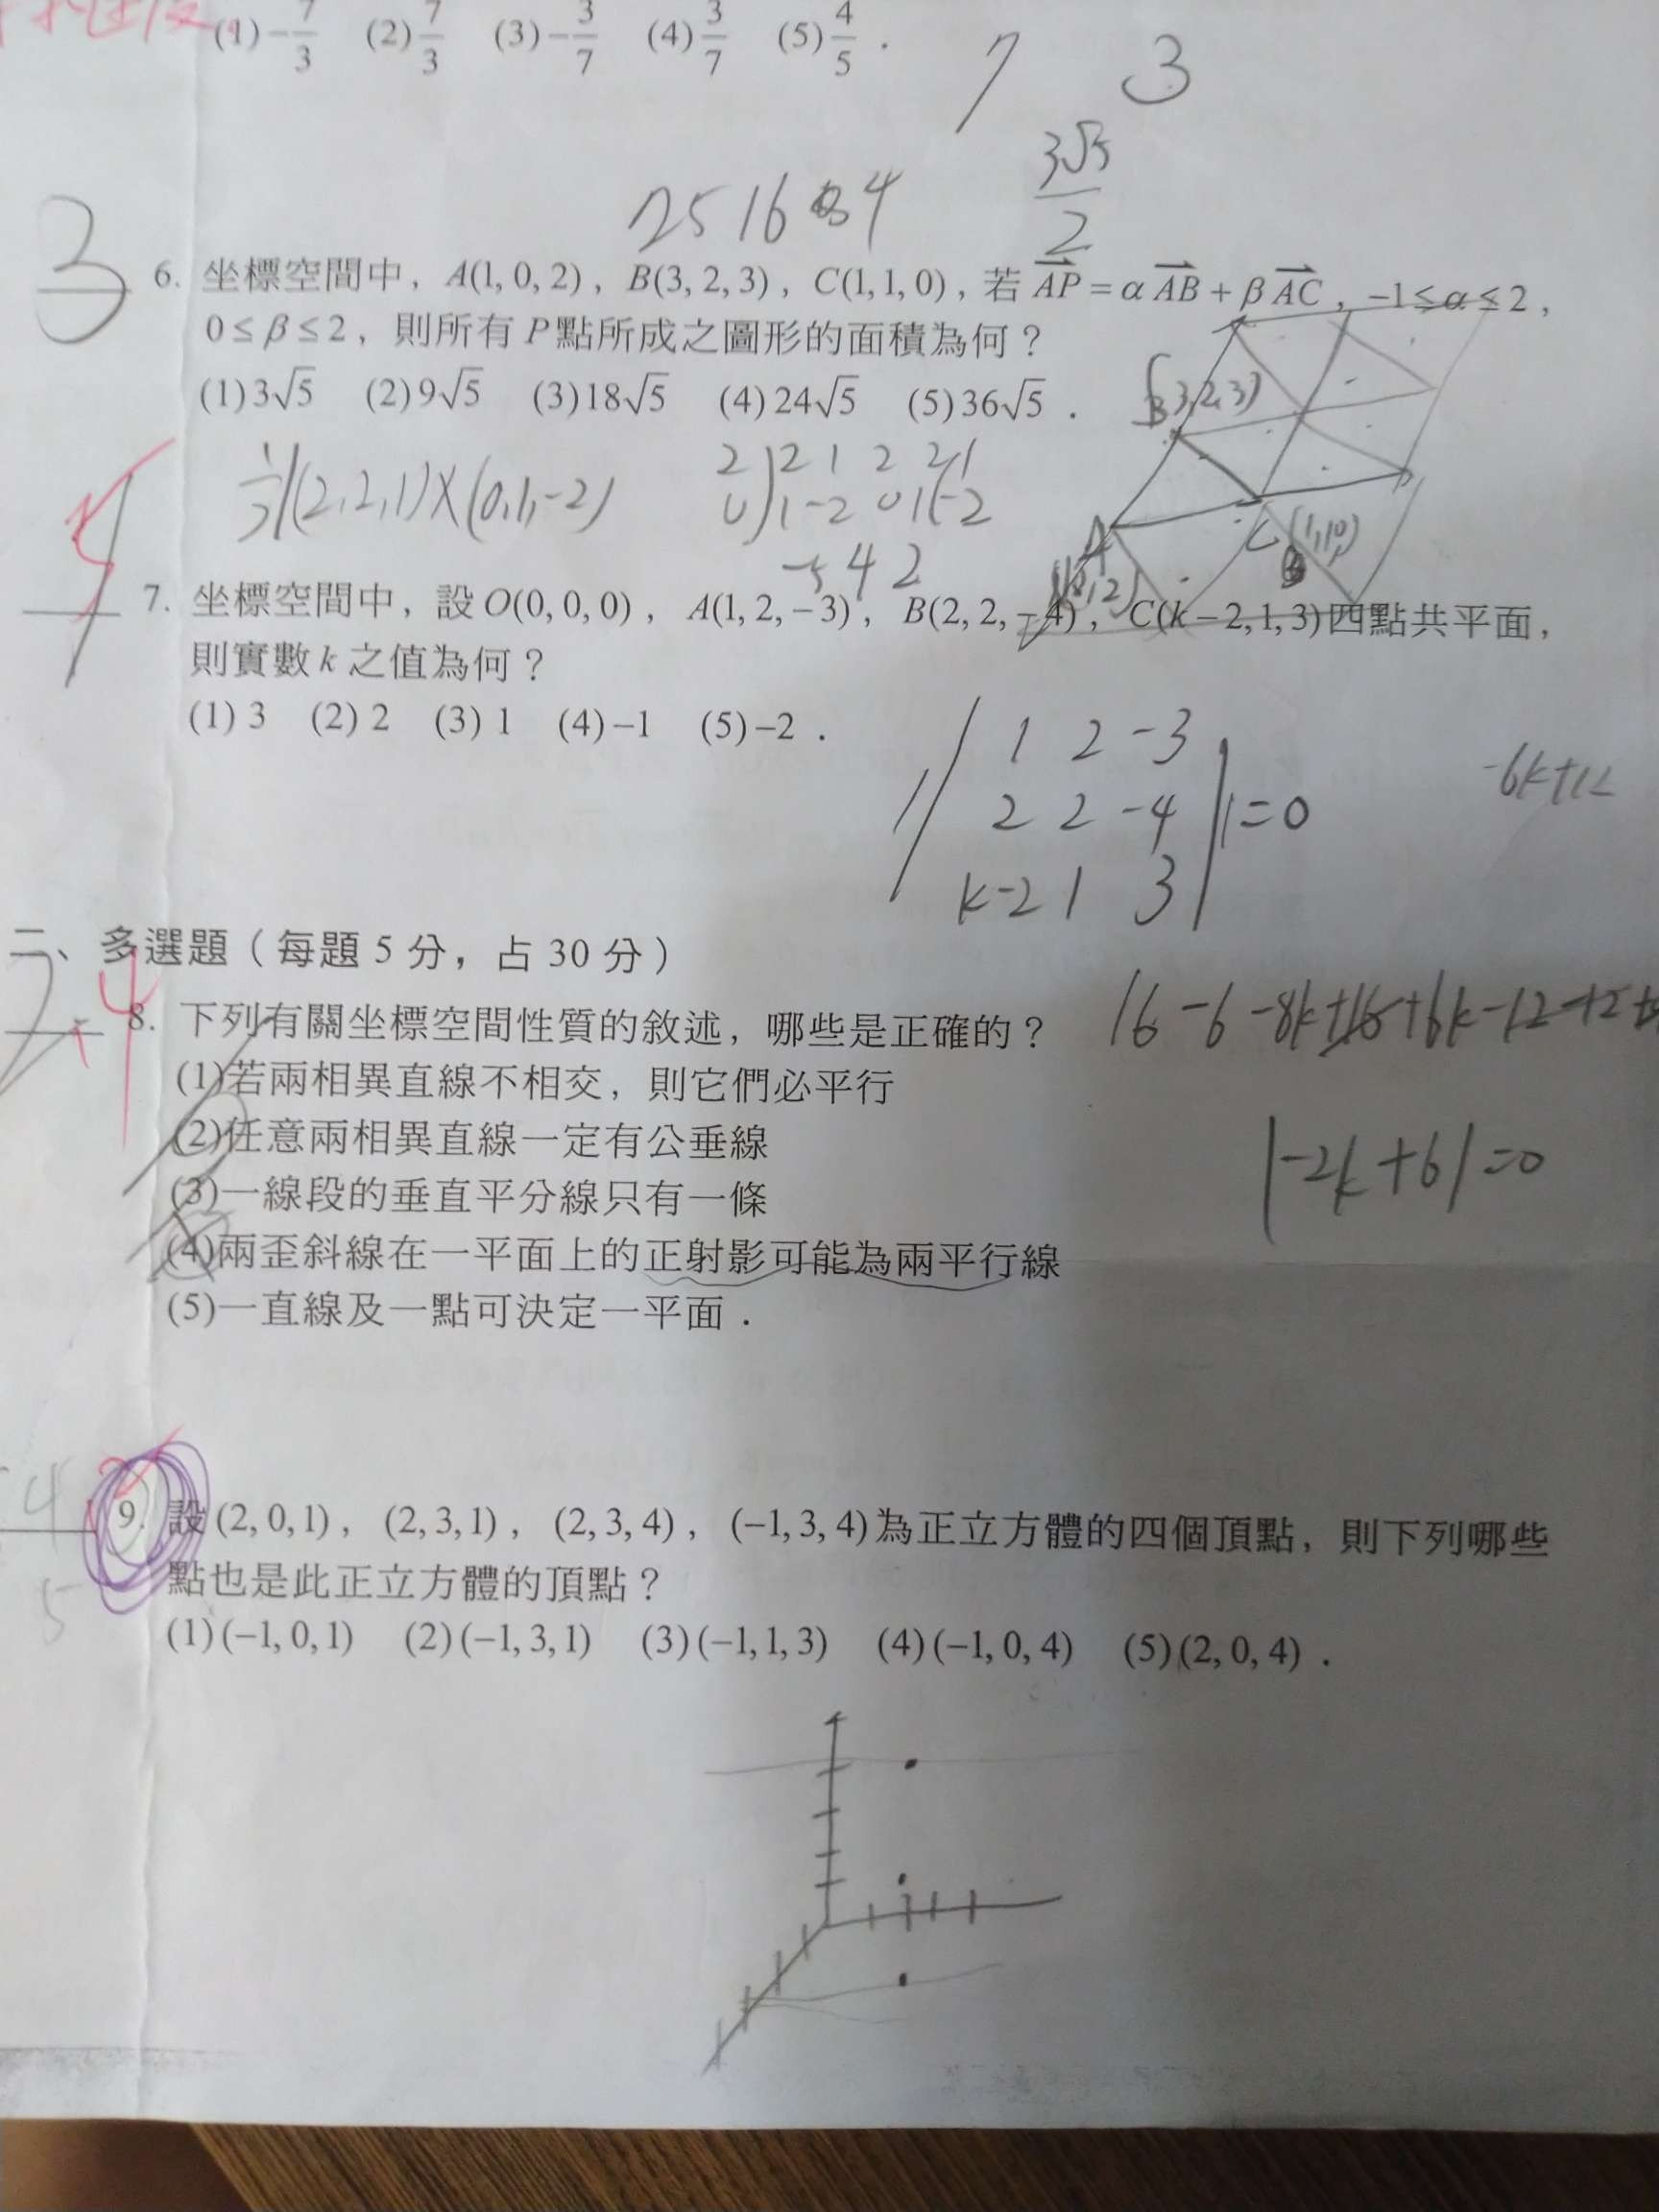 (1) −7/3 (2) 7/3 (3) −3/7 (4) 3/7 (5) 4/5 .
7 3
3√5/2
25 16 4
3
6. 坐標空間中，A(1, 0, 2)，B(3, 2, 3)，C(1, 1, 0)，若 AP = α AB + β AC，−1 ≤ α ≤ 2，
0 ≤ β ≤ 2，則所有 P 點所成之圖形的面積為何？
(1) 3√5 (2) 9√5 (3) 18√5 (4) 24√5 (5) 36√5 .
B(3,2,3)
|(2,2,1)×(0,1,-2)
2 | 2 1 2 2 | 1
0 | 1 -2 0 1 | -2
-5 4 2
A
C(1,1,0)
7. 坐標空間中，設 O(0, 0, 0)，A(1, 2, −3)，B(2, 2, −4)，C(k − 2, 1, 3) 四點共平面，
則實數 k 之值為何？
(1) 3 (2) 2 (3) 1 (4) −1 (5) −2 .
1 2 -3
2 2 -4 =0
k-2 1 3
-6k+12
二、多選題（每題 5 分，占 30 分）
8. 下列有關坐標空間性質的敘述，哪些是正確的？
16-6-8k+16+6k-12-12
(1)若兩相異直線不相交，則它們必平行
(2)任意兩相異直線一定有公垂線
|-2k+6|=0
(3)一線段的垂直平分線只有一條
(4)兩歪斜線在一平面上的正射影可能為兩平行線
(5)一直線及一點可決定一平面．
4
9. 設 (2, 0, 1)，(2, 3, 1)，(2, 3, 4)，(−1, 3, 4) 為正立方體的四個頂點，則下列哪些
點也是此正立方體的頂點？
5
(1) (−1, 0, 1) (2) (−1, 3, 1) (3) (−1, 1, 3) (4) (−1, 0, 4) (5) (2, 0, 4) .